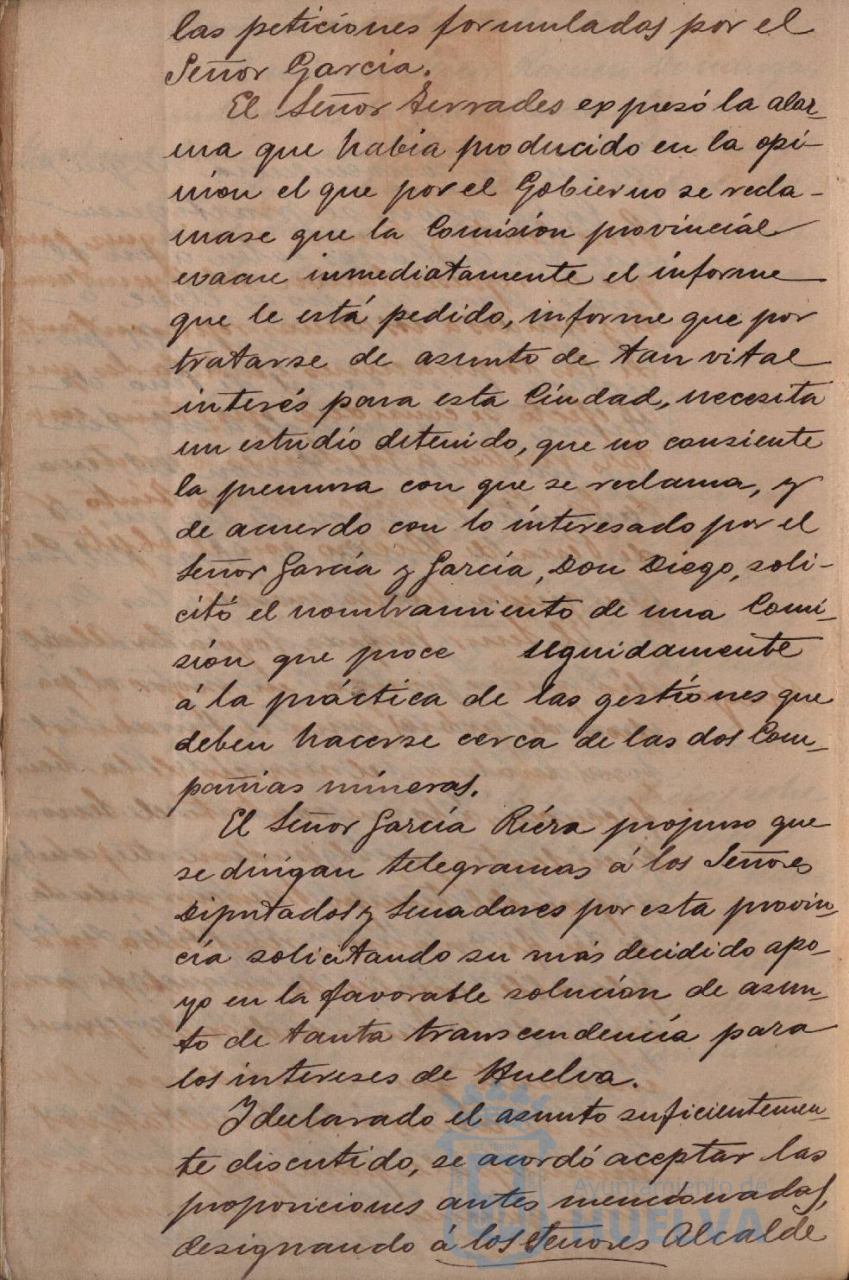 las peticiones formuladas por el
Señor García.
El Señor Terrades expresó la alar-
ma que había producido en la opi-
nión el que por el Gobierno se recla-
mase que la Comisión provincial
evacue inmediatamente el informe
que le está pedido, informe que por
tratarse de asunto de tan vital
interés para esta Ciudad, necesita
un estudio detenido, que no consiente
la premura con que se reclama, y
de acuerdo con lo interesado por el
Señor García y García, Don Diego, soli-
citó el nombramiento de una Comi-
sión que proce seguidamente
á la práctica de las gestiones que
deben hacerse cerca de las dos Com-
pañias mineras.
El Señor García Riera propuso que
se dirigan telegramas á los Señores
Diputados y Senadores por esta provin-
cia solicitando su más decidido apo-
yo en la favorable solución de asun-
to de tanta transcendencia para
los intereses de Huelva.
I declarado el asunto suficientemen-
te discutido, se acordó aceptar las
proposiciones antes mencionadas,
designando á los Señores Alcalde
Ayuntamiento de
HUELVA